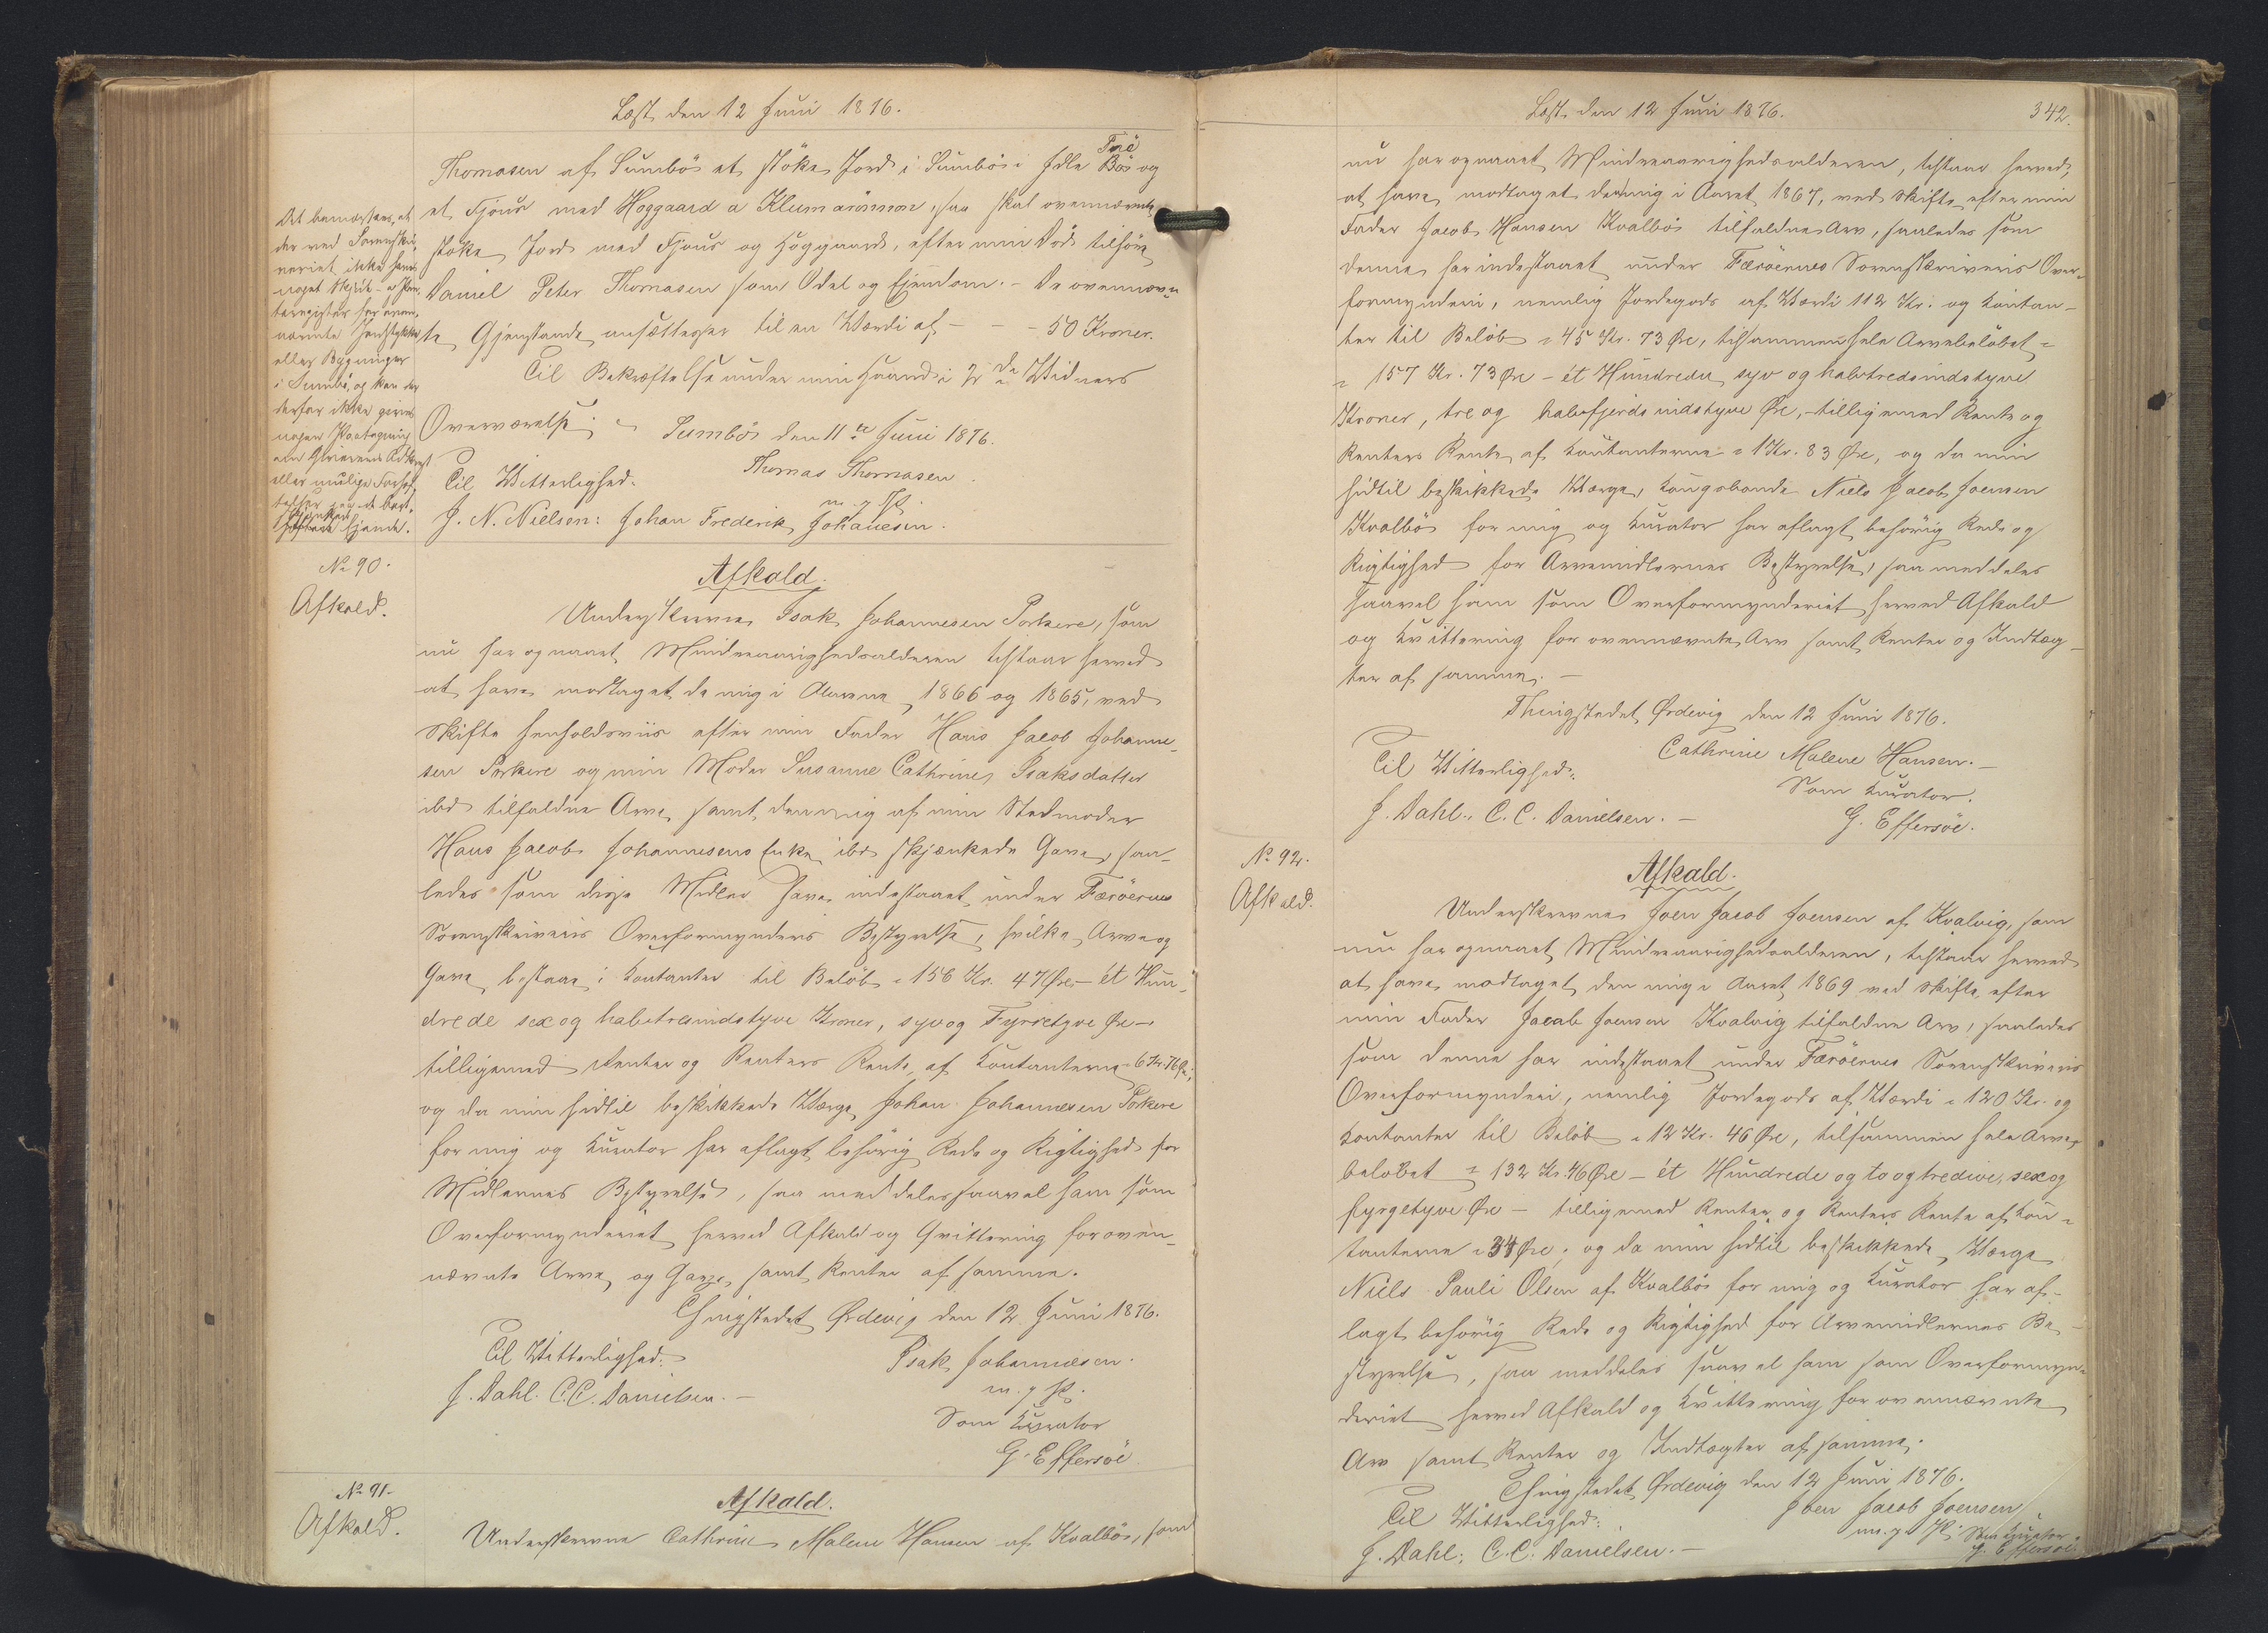 Læst den 12 Juni 1876.
Thomasen af Sumbö et stöke Jord i Sumbö i Bös og
et Fjöus med Hoggaard a Klumarönnon, saa skal ovennævnte
stöke Jord med Fjöus og Höggaard, efter min Död tilhöre
Daniel Peter Thomasen som Odel og Ejendom. - De ovennævn
te Gjenstande ansættes til en Værdi af - - - 50 Kroner.
Til Bekræftelse under min Haand i 2de Vidners
Overværelse.
Sumbö den 11te Juni 1876.
Thomas Thomasen
m. p. P.
Til Vitterlighed.
J. N. Nielsen: Johan Frederik Johanesen.
Det bemærkes, at
der ved Sorenskri-
veriet ikke haves
noget Skjöde- e Pan-
teregister for oven-
nævnte Jordstykke
eller Bygninger
i Sumbö, og kan der
derfor ikke gives
nogen Paategning
om Giverens Adkomst
eller mulige Forhæf-
telser paa de bort-
skjænkede Ejende.
No 90.
Afkald.
Afkald.
Underskrevne Isak Johannesen Porkere, som
nu har opnaaet Mindreaarighedsalderen tilstaar herved
at have modtaget de mig i Aarene 1866 og 1865, ved
Skifte henholdsviis efter min Fader Hans Jacob Johanne-
sen Porkere og min Moder Susanne Cathrine Isaksdatter
ibd tilfaldne Arve, samt den mig af min Stedmoder
Hans Jacob Johannesens Enke ibd skjænkede Gave, saa-
ledes som disse Midler have indestaaet under Færöernes
Sorenskriveris Overformynderis Bestyrelse, hvilke Arve og
Gave bestaae i Kontanter til Belöb 156 Kr. 47 Öre - ét Hun-
drede sex og halvtresindstyve Kroner, syv og Fyrretyve Öre -
tilligemed Renter og Renters Rente af Kontanterne 6 Kr. 76 Öre;
og da min hidtil beskikkede Værge Johan Johannesen Porkere
for mig og Kurator har aflagt behörig Rede og Rigtighed for
Midlernes Bestyrelse, saa meddeles saavel ham som
Overformynderiet herved Afkald og Qvittering for oven-
nævnte Arve og Gave, samt Renter af samme.
Thingstedet Ördevig den 12 Juni 1876.
Isak Johannesen.
m. p. P.
Som Kurator
G. Effersöe
Til Vitterlighed:
J. Dahl. C. C. Danielsen. -
No 91.
Afkald.
Afkald.
Underskrevne Cathrine Malene Hansen af Kvalbö, som
Læst den 12 Juni 1876.
342.
nu har opnaaet Mindreaarighedsalderen, tilstaar herved,
at have modtaget den mig i Aaret 1867, ved Skifte efter min
Fader Jacob Hansen Kvalbö tilfaldne Arv, saaledes som
denne har indestaaet under Færöernes Sorenskriveris Over-
formynderi, nemlig Jordegods af Værdi 112 Kr. og Kontan-
ter til Belöb 45 Kr. 73 Öre, tilsammen hele Arvebelöbet
157 Kr. 73 Öre - ét Hundrede syv og halvtredsindstyve
Kroner, tre og halvfjerdsindstyve Öre, - tilligemed Rente og
Renters Rente af Kontanterne 1 Kr. 83 Öre, og da min
hidtil beskikkede Værge, Kongsbonde Niels Jacob Joensen
Kvalbö for mig og Kurator har aflagt behörig Rede og
Rigtighed for Arvemidlernes Bestyrelse, saa meddeles
saavel ham som Overformynderiet herved Afkald
og Kvittering for ovennævnte Arv samt Renter og Indtæg-
ter af samme. -
Thingstedet Ördevig den 12 Juni 1876.
Cathrine Malene Hansen. -
Som Kurator.
G. Effersöe.
Til Vitterlighed:
J. Dahl. C. C. Danielsen. -
No 92.
Afkald.
Afkald.
Underskrevne Joen Jacob Joensen af Kvalvig, som
nu har opnaaet Mindreaarighedsalderen, tilstaar herved
at have modtaget den mig i Aaret 1869 ved Skifte efter
min Fader Jacob Joensen Kvalvig tilfaldne Arv, saaledes
som denne har indestaaet under Færöernes Sorenskriveris
Overformynderi, nemlig Jordegods af Værdi 120 Kr. og
Kontanter til Belöb 12 Kr. 46 Öre, tilsammen hele Arve-
belöbet 132 Kr. 46 Öre - ét Hundrede og to og tredive, sex og
fyrgetyve Öre - tilligemed Renter og Renters Rente af Kon-
tanterne 34 Öre; og da min hidtil beskikkede Værge
Niels Pauli Olsen af Kvalbö for mig og Kurator har af-
lagt behörig Rede og Rigtighed for Arvemidlernes Be-
styrelse, saa meddeles saavel ham som Overformyn-
deriet herved Afkald og Kvittering for ovennævnte
Arv samt Renter og Indtægter af samme.
Thingstedet Ördevig den 12 Juni 1876.
Joen Jacob Joensen
m. p. P. Som Kurator.
G. Effersöe
Til Vitterlighed:
J. Dahl. C. C. Danielsen. -